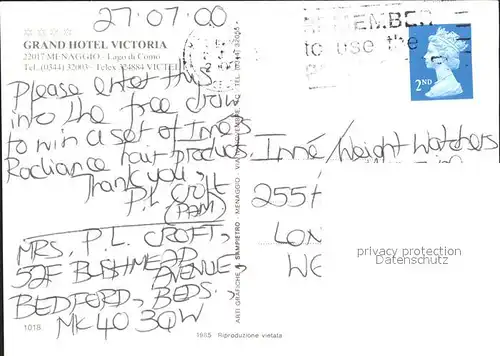 27.07.00
GRAND HOTEL VICTORIA
22017 MENAGGIO - Lago di Como
Tel. (0344) 32003 - Telex 324884 VICTEL
Please enter this
into the free draw
to win a set of Innés
Radiance hair product.
Thank you,
P.L Croft
(PAM)
MRS. P.L. CROFT,
52F BUSHMEAD
AVENUE,
BEDFORD, BEDS.
MK40 3QW
1018
1985 Riproduzione vietata
ARTI GRAFICHE SAMPIETRO - MENAGGIO - VIA
MEMBER
to use the
2ND
Inné/Weight Watchers
255
LON
WE
privacy protection
Datenschutz